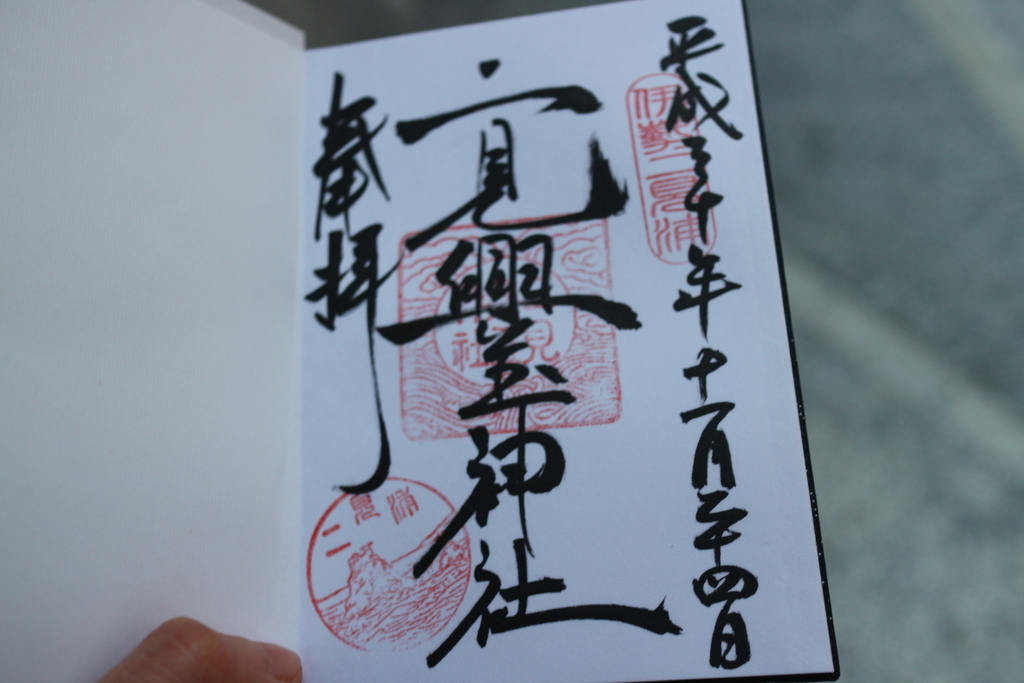 平成三十年十一月二十四日
伊勢二見浦
二見興玉神社
奉拝
二見浦